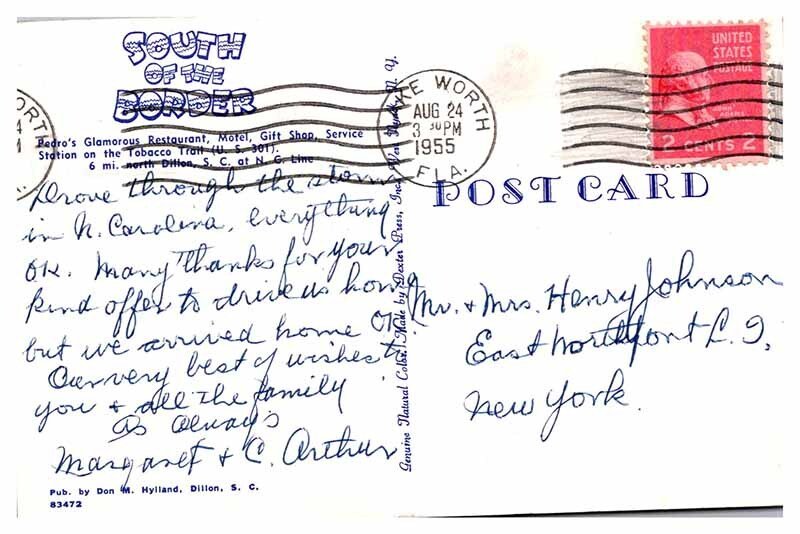 SOUTH
OF THE
BORDER
Pedro's Glamorous Restaurant, Motel, Gift Shop, Service
Station on the Tobacco Trail (U. S. 301).
6 mi. north Dillon, S. C. at N. C. Line
Drove through the storm
in N. Carolina, everything
OK. Many thanks for your
kind offer to drive us home
but we arrived home OK
Our very best of wishes to
you & all the family
As always
Margaret & C. Arthur
Pub. by Don M. Hylland, Dillon, S. C.
83472
Genuine Natural Color. Made by Dexter Press, Inc., West Nyack, N. Y.
WORTH
AUG 24
3 30 PM
1955
FLA.
UNITED
STATES
POSTAGE
2 CENTS 2
POST CARD
Mr. & Mrs. Henry Johnson
East Northport L. I,
New York.